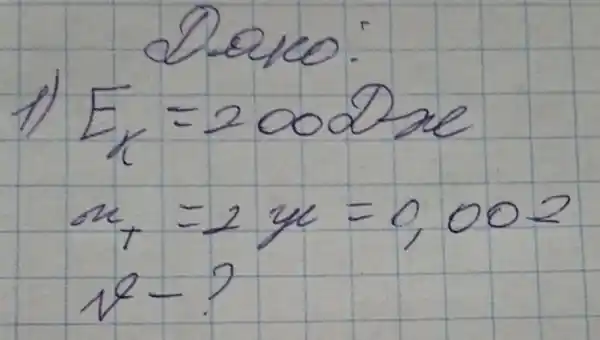 Дано:
1) Eк = 200 Дж
mт = 2 = 0,002
v - ?